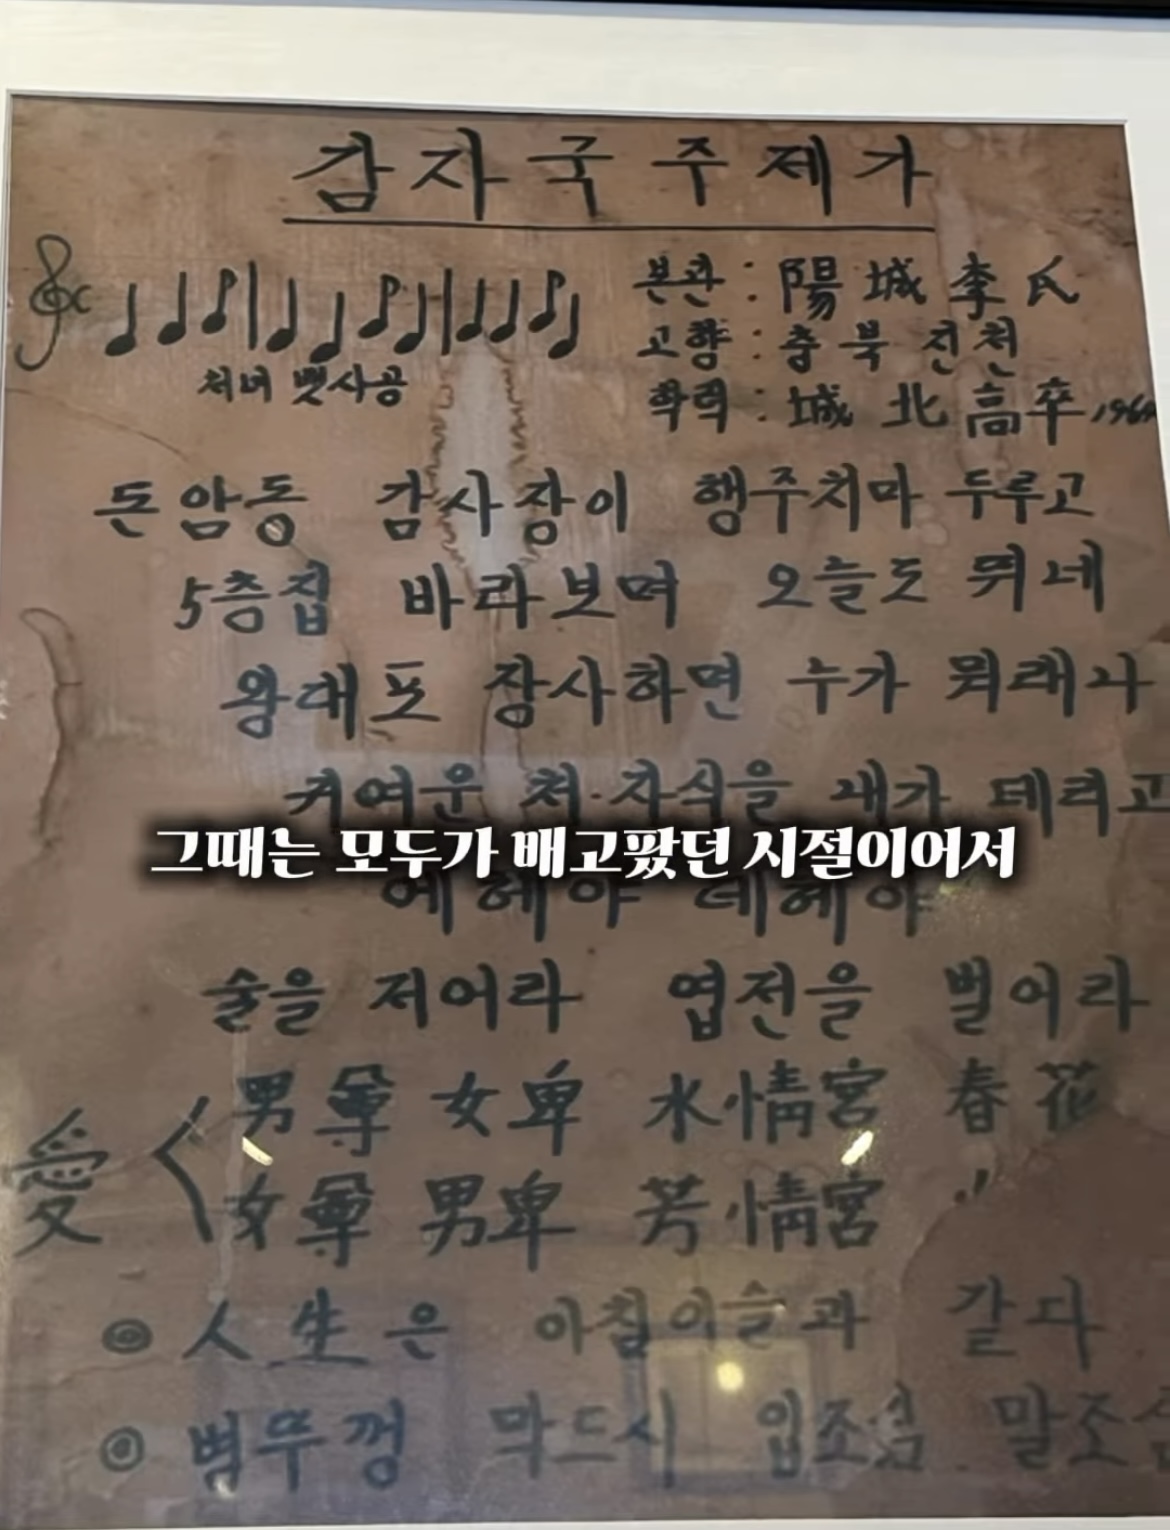 감자국 주제가
본관 : 陽城李氏
고향 : 충북 진천
학력 : 城北高卒
처녀 뱃사공
돈암동 감사장이 행주치마 두루고
5층집 바라보며 오늘도 뛰네
왕대포 장사하면 누가 뭐래나
귀여운 처·자식을 내가 데리고
그때는 모두가 배고팠던 시절이어서
에헤야 데헤야
술을 저어라 엽전을 벌어라
愛
男尊女卑 水情宮 春花
女尊男卑 芳情宮 〃
◎ 人生은 아침이슬과 같다
◎ 병뚜껑 막드시 입조심 말조심